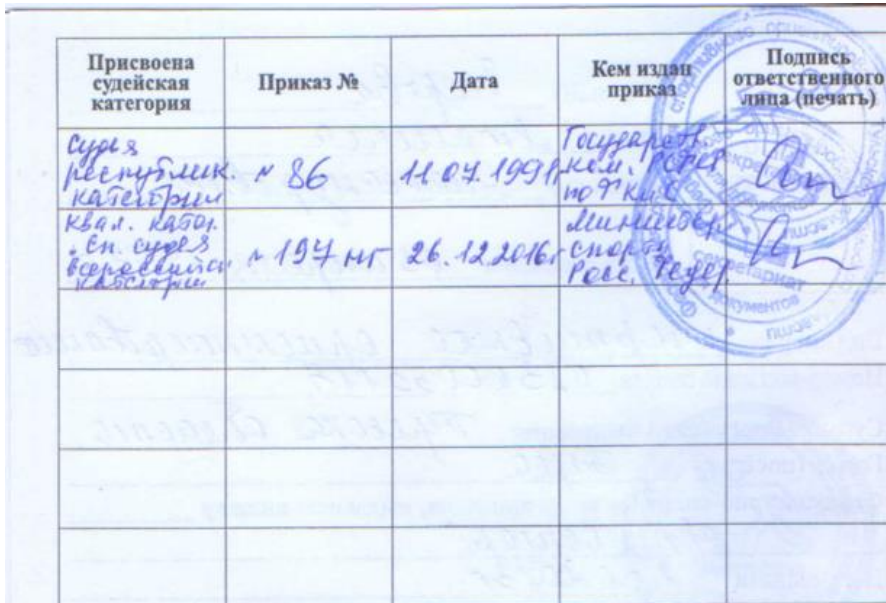 Присвоена
судейская
категория
Приказ №
Дата
Кем издан
приказ
Подпись
ответственного
лица (печать)
Судья
республик.
категории
№ 86
11.07.1991г
Государств.
ком. РСФСР
по ФК и С
квал. катег.
Сп. судья
всероссийской
категории
№ 197 нг
26.12.2016г
Министер.
спорта
Росс. Федер.
секретариат
документов